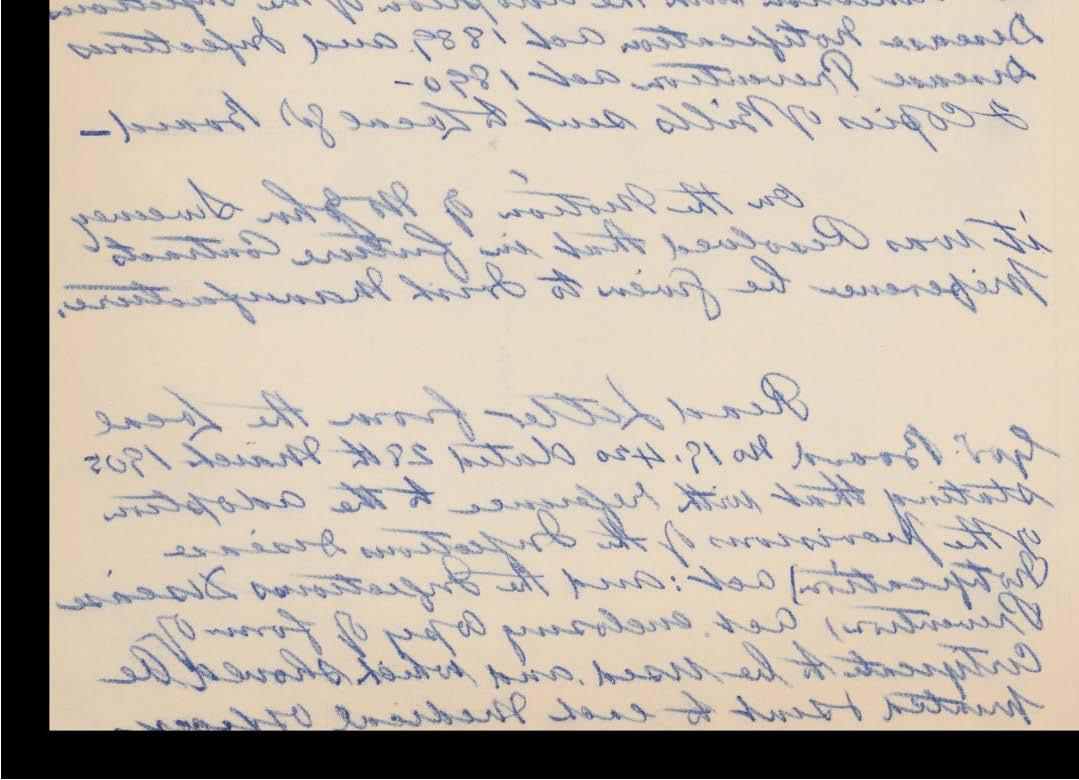 the adoption of the Infectious
Disease Notification act 1889 and Infectious
Disease Prevention act 1890 –
2 Copies of Bills sent to Local Gov Board –
On the Motion of Mr John Sweeney
it was Resolved that in future Contracts
Preference be given to Irish Manufacture.
Read Letter from the Local
Govt. Board No 19.420 dated 29th March 1905
stating that with reference to the adoption
of the provisions of the Infectious Disease
Notification) act: and the Infectious Disease
Prevention) act. enclosing Copy of form of
Certificate to be used and which should be
printed & sent to each Medical Officer